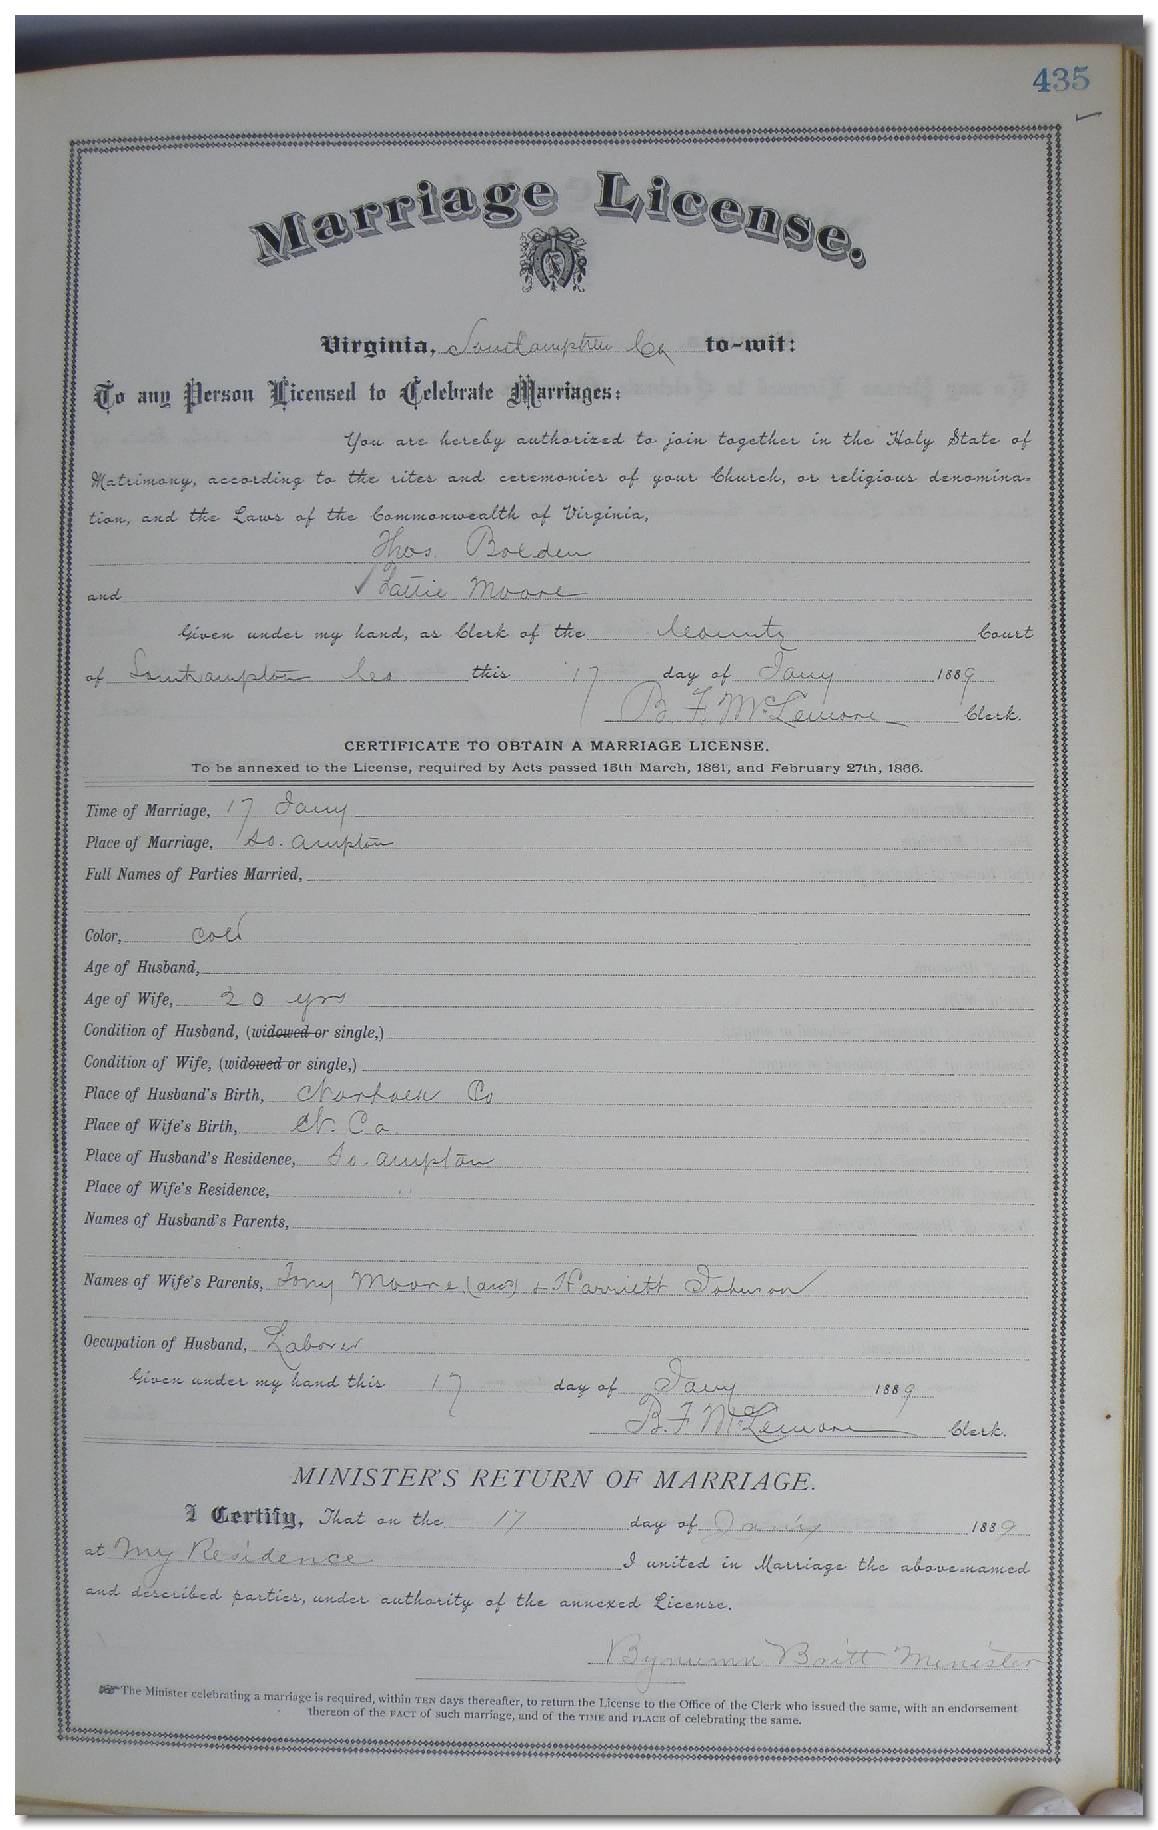 435
Marriage License.
Virginia, Southampton Co to-wit:
To any Person Licensed to Celebrate Marriages:
You are hereby authorized to join together in the Holy State of
Matrimony, according to the rites and ceremonies of your Church, or religious denomina-
tion, and the Laws of the Commonwealth of Virginia,
Thos. Bolden
and Lattie Moore
Given under my hand, as Clerk of the County Court
of Southampton Co this 17 day of Jany 1889
B. F. McLemore Clerk.
CERTIFICATE TO OBTAIN A MARRIAGE LICENSE.
To be annexed to the License, required by Acts passed 15th March, 1861, and February 27th, 1866.
Time of Marriage, 17 Jany
Place of Marriage, So. ampton
Full Names of Parties Married,
Color, Cold
Age of Husband,
Age of Wife, 20 yrs
Condition of Husband, (widowed or single,)
Condition of Wife, (widowed or single,)
Place of Husband's Birth, Norfolk Co
Place of Wife's Birth, N. Ca.
Place of Husband's Residence, So. ampton
Place of Wife's Residence, "
Names of Husband's Parents,
Names of Wife's Parents, Tony Moore & Harriett Johnson
Occupation of Husband, Laborer
Given under my hand this 17 day of Jany 1889
B. F. McLemore Clerk.
MINISTER'S RETURN OF MARRIAGE.
I Certify, That on the 17 day of 1889
at My Residence I united in Marriage the above-named
and described parties, under authority of the annexed License.
Bynumn Britt Minister
The Minister celebrating a marriage is required, within TEN days thereafter, to return the License to the Office of the Clerk who issued the same, with an endorsement
thereon of the FACT of such marriage, and of the TIME and PLACE of celebrating the same.